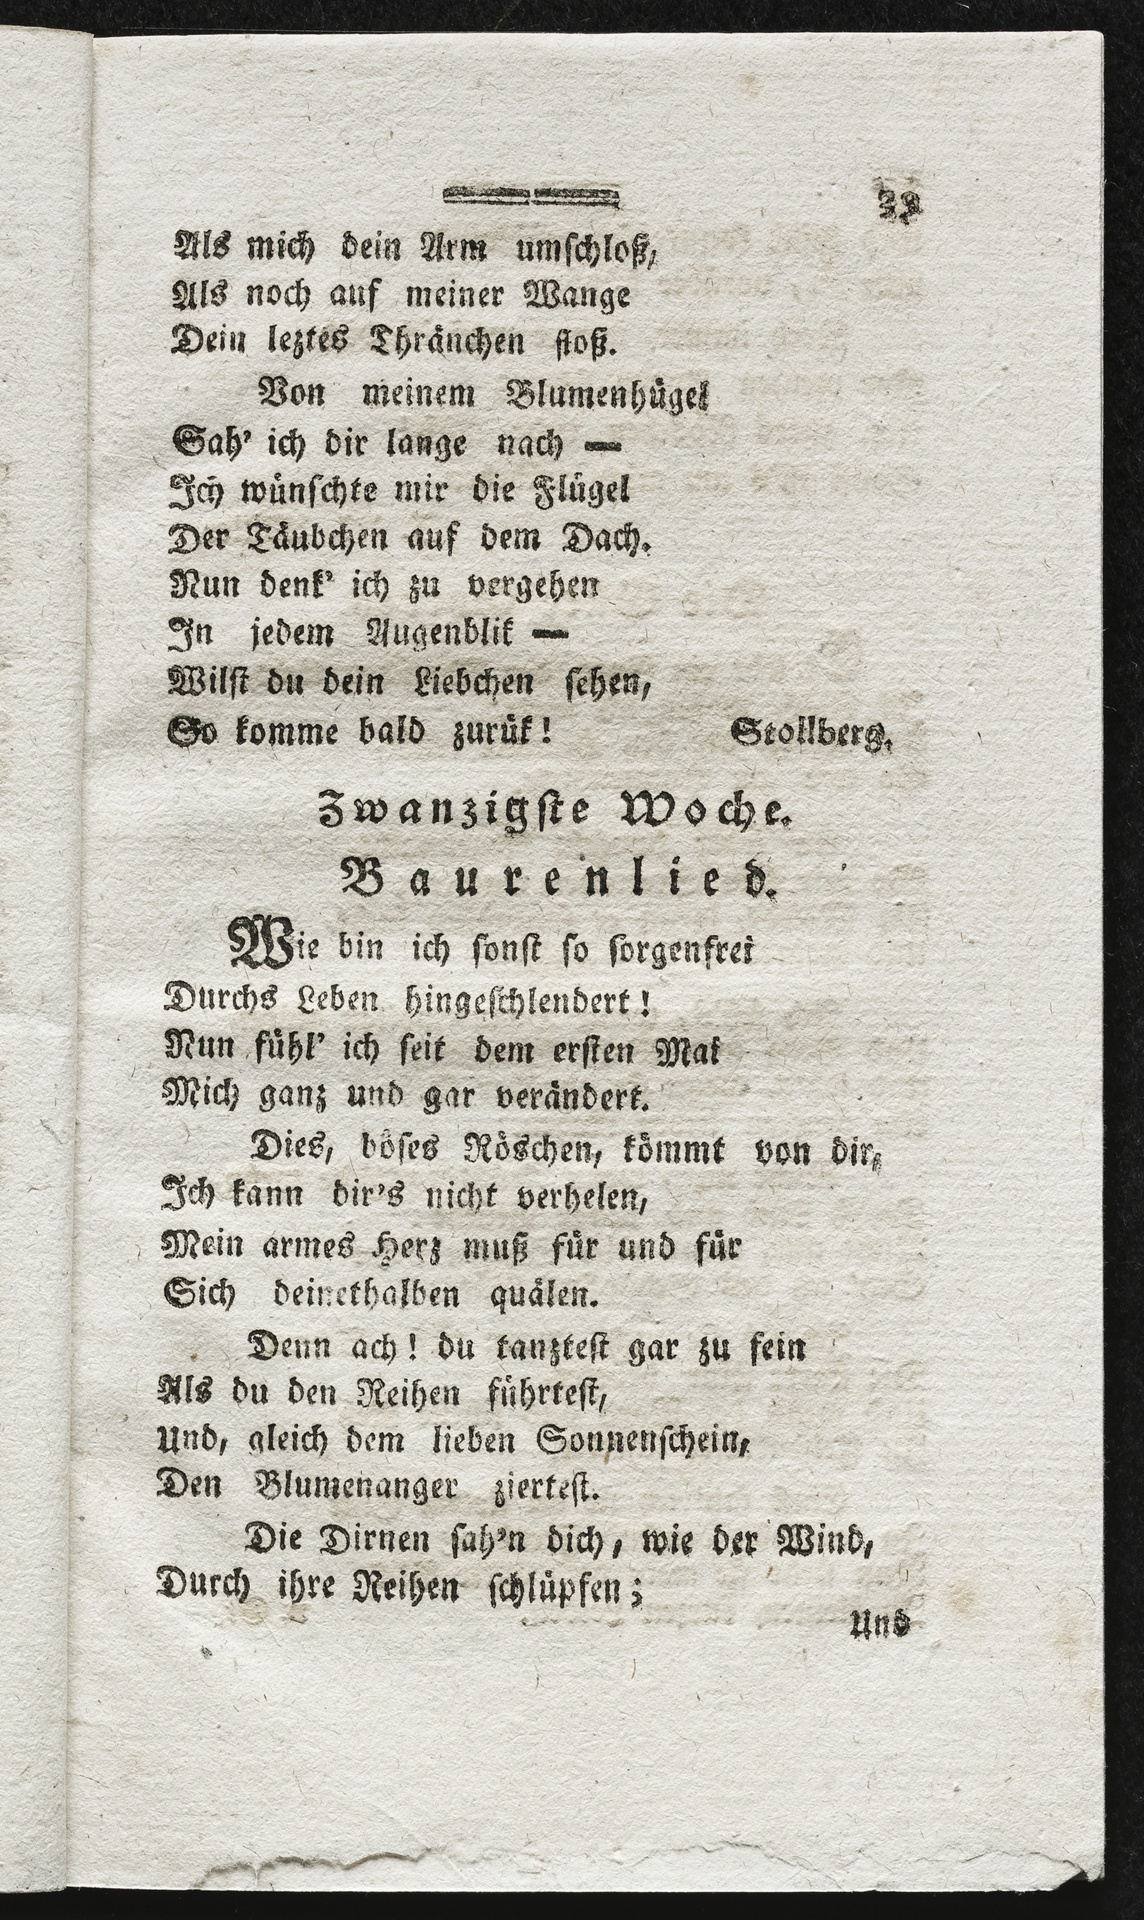 Als mich dein Arm umschloß,
Als noch auf meiner Wange
Dein leztes Thränchen floß.
Von meinem Blumenhügel
Sah' ich dir lange nach —
Ich wünschte mir die Flügel
Der Täubchen auf dem Dach.
Nun denk' ich zu vergehen
In jedem Augenblik —
Wilst du dein Liebchen sehen,
So komme bald zurük! Stollberg.
Zwanzigste Woche.
Baurenlied.
Wie bin ich sonst so sorgenfrei
Durchs Leben hingeschlendert!
Nun fühl' ich seit dem ersten Mai
Mich ganz und gar verändert.
Dies, böses Röschen, kömmt von dir,
Ich kann dir's nicht verhelen,
Mein armes Herz muß für und für
Sich deinethalben quälen.
Denn ach! du tanztest gar zu fein
Als du den Reihen führtest,
Und, gleich dem lieben Sonnenschein,
Den Blumenanger ziertest.
Die Dirnen sah'n dich, wie der Wind,
Durch ihre Reihen schlüpfen;
Und